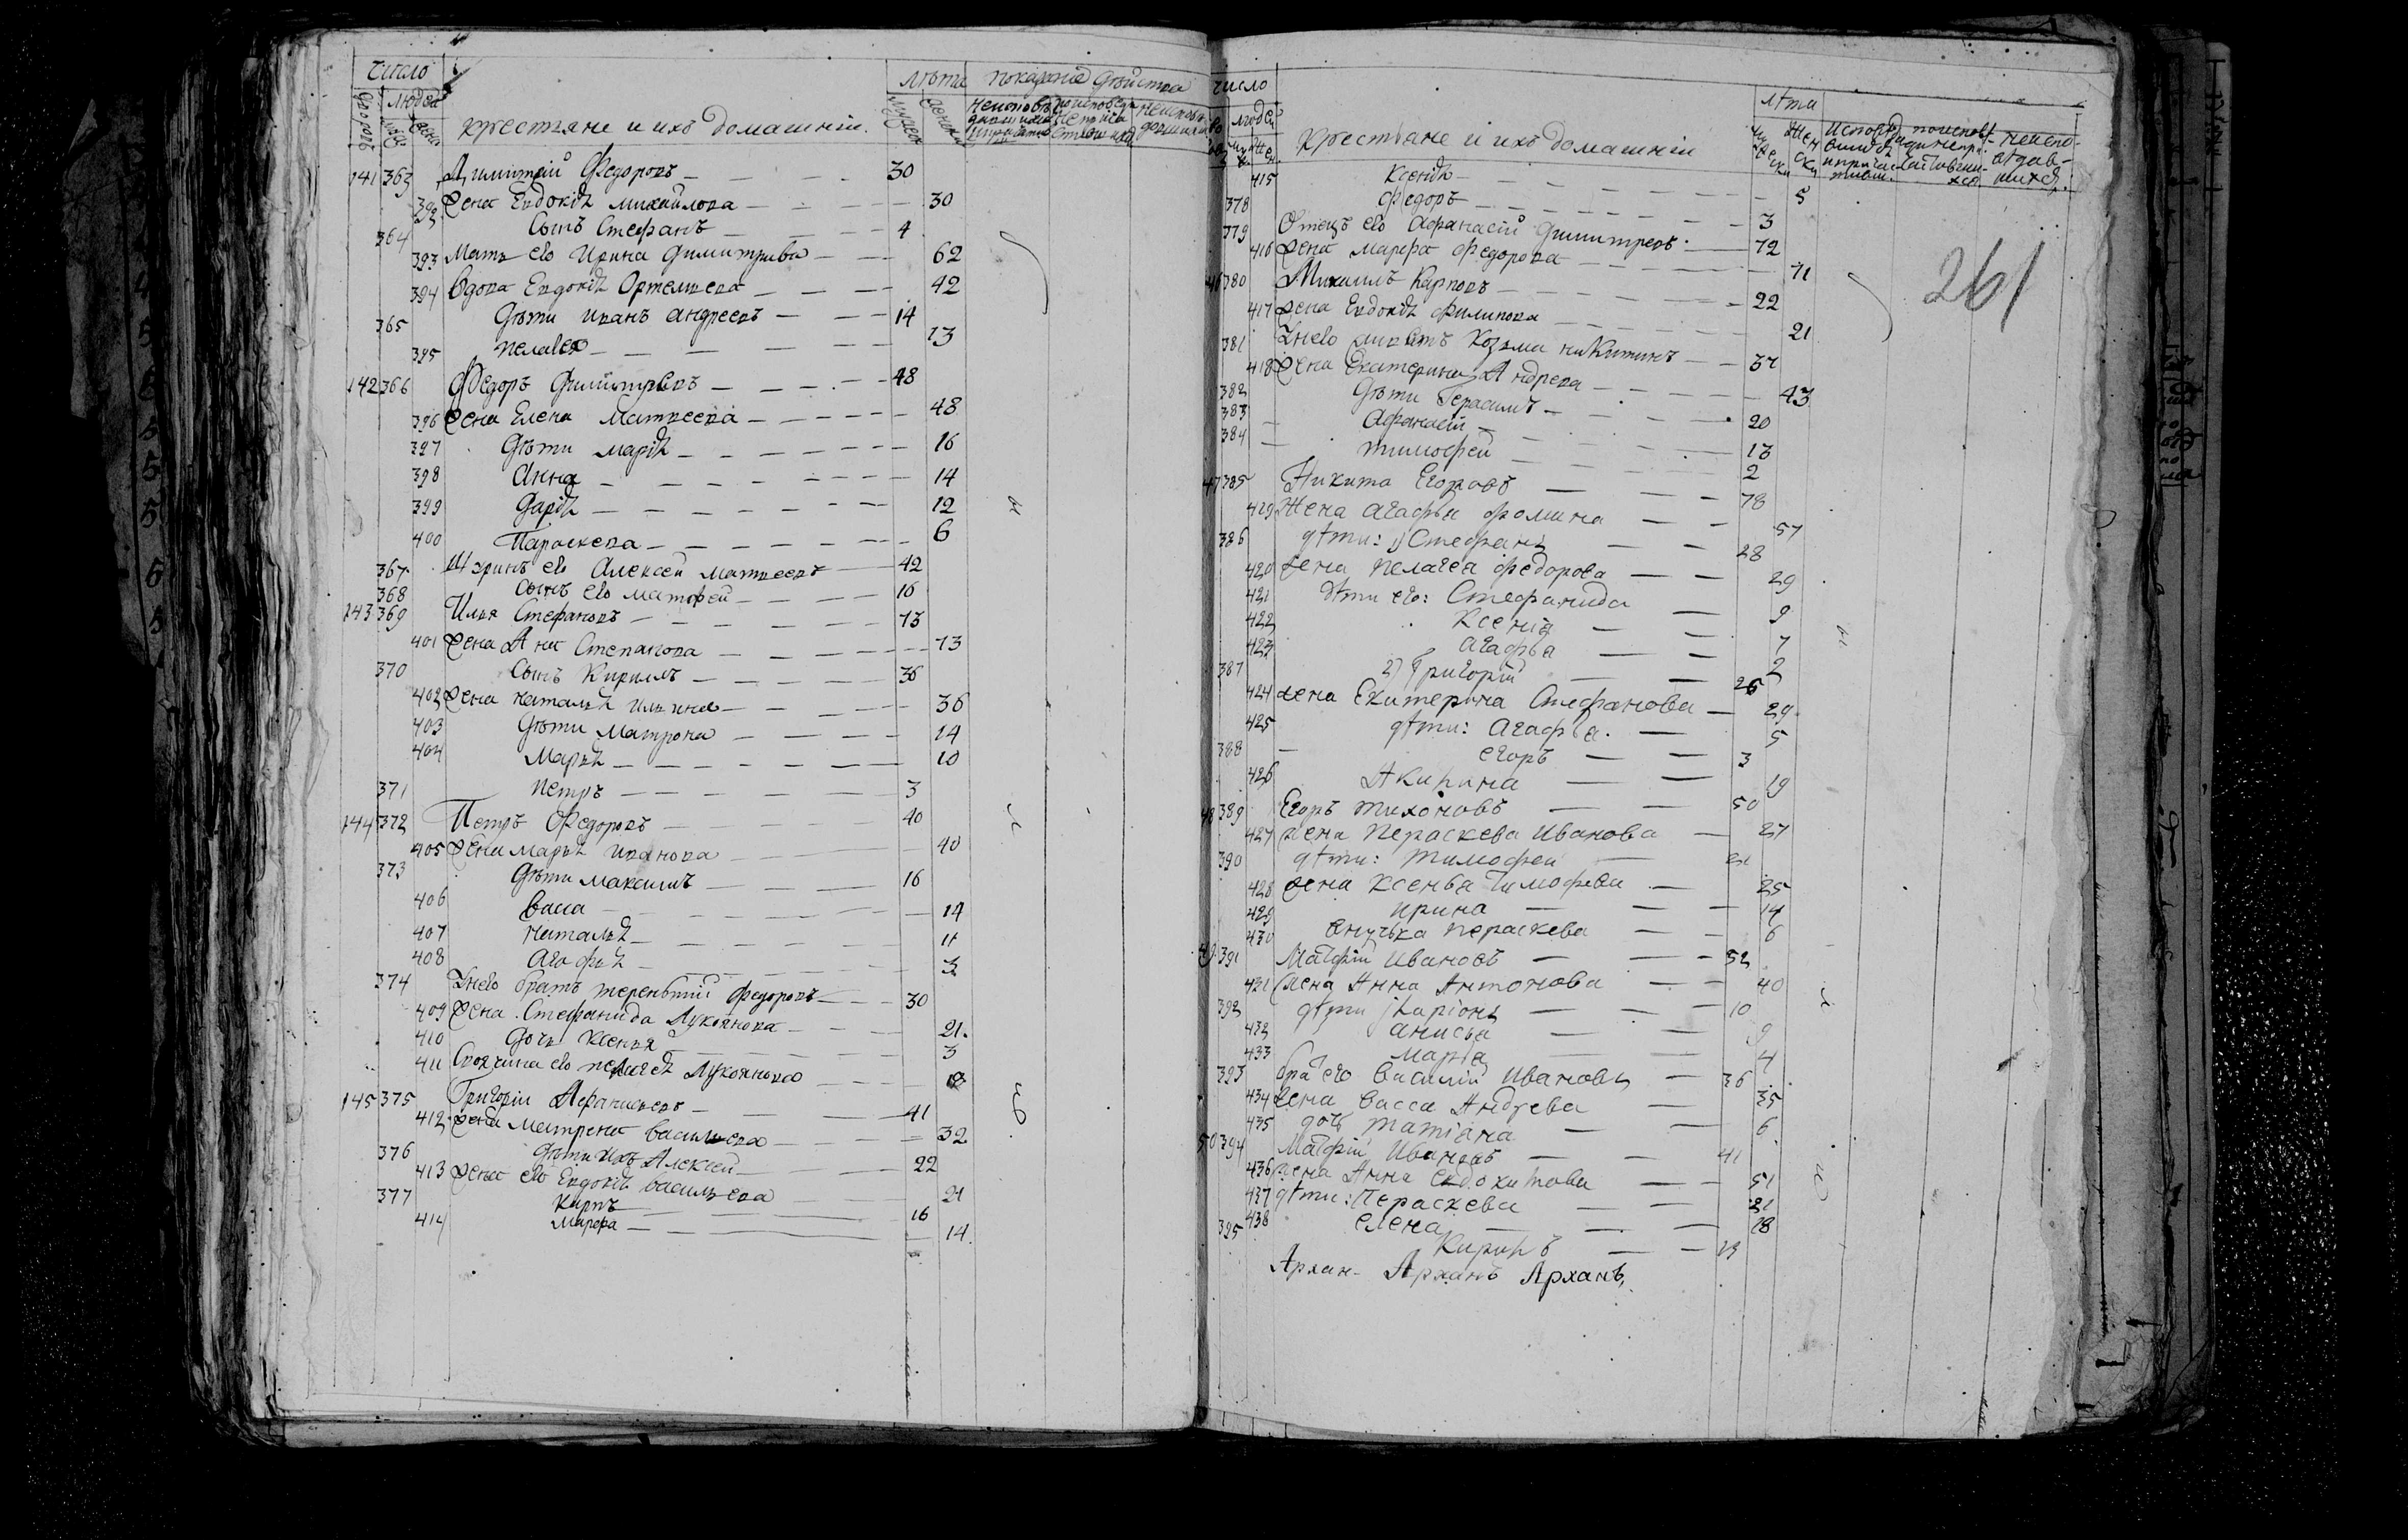 Число
Лѣта показаніе дѣйства
дворовъ
людей
крестьяне и ихъ домашніи.
141 363 Димитрій Федоровъ 30
392 Жена Евдокія Михайлова 30
364 Сынъ Стефанъ 4
393 Мать его Ирина Димитриева 62
394 Вдова Евдокія Ортемьева 42
365 Дѣти Иванъ Андреевъ 14
395 Пелагея 13
142 366 Федоръ Димитриевъ 48
396 Жена Елена Матвеева 48
397 Дѣти Марія 16
398 Анна 14
399 Дарія 12
400 Параскева 6
367 Шуринъ его Алексей Матвеевъ 42
368 Сынъ его Матфей 16
143 369 Илья Стефановъ 73
401 Жена Анна Степанова 73
370 Сынъ Кирилъ 36
402 Жена Наталья Ильина 36
403 Дѣти Матрона 14
404 Марья 10
371 Петръ 3
144 372 Петръ Федоровъ 40
405 Жена Марья Иванова 40
373 Дѣти Максимъ 16
406 Васса 14
407 Наталья 11
408 Агафья 3
374 У него братъ Терентий Федоровъ 30
409 Жена Стефанида Лукоянова 21.
410 Дочь Ксенья 3
411 Своячина его Пелагея Лукоянова
145 375 Григорій Афанасьевъ 41
412 Жена Матрена Васильева 32
376 Дѣти ихъ Алексей 22
413 Жена его Евдокія Васильева 21
377 Карпъ 16
414 Марфа 14.
число
людей
Лѣта
крестьане и ихъ домашніи
415 Ксенія 5
378 Федоръ 3
379 Отецъ его Афанасій Димитревъ 72
416 Жена Марфа Федорова 71
46 380 Михаилъ Карповъ 22
417 Жена Евдокія Филипова 21
381 У него Козьма Никитинъ 37
418 Жена Екатерина Андреева 43
382 Дѣти Герасимъ 20
383 Афанасій 13
384 Тимофей 2
47 385 Никита Егоровъ 78
419 Жена Агафья Фомина 57
386 дѣти: 1) Стефанъ 28
420 жена Пелагея Федорова 29
421 дѣти его: Стефанида 9
422 Ксенія 7
423 Агафья 2
387 2) Григорій 26
424 жена Екатерина Стефанова 29.
425 дѣти: Агафья. 5
388 Егоръ 3
426 Акилина 19
48 389 Егоръ Тихоновъ 50
427 жена Пераскева Иванова 27
390 дѣти: Тимофеи 21
428 жена Ксенья Тимофева 25
429 Ирина 14
430 Внучька Пераскева 6
49 391 Матфій Ивановъ 52
431 жена Анна Антонова 40
392 дѣти Иларіонъ 10
432 Анисья 9
433 Марья 4
393 Бра его Василій Ивановъ 36
434 жена Васса Андреева 35
435 дочь Татіана 6
50 394 Матфій Ивановъ 41
436 жена Анна Евдокимова 51
437 дѣти: Пераскева 21
438 Елена 18
395 Кирилъ 13
Архан- Арханъ Арханъ,
261